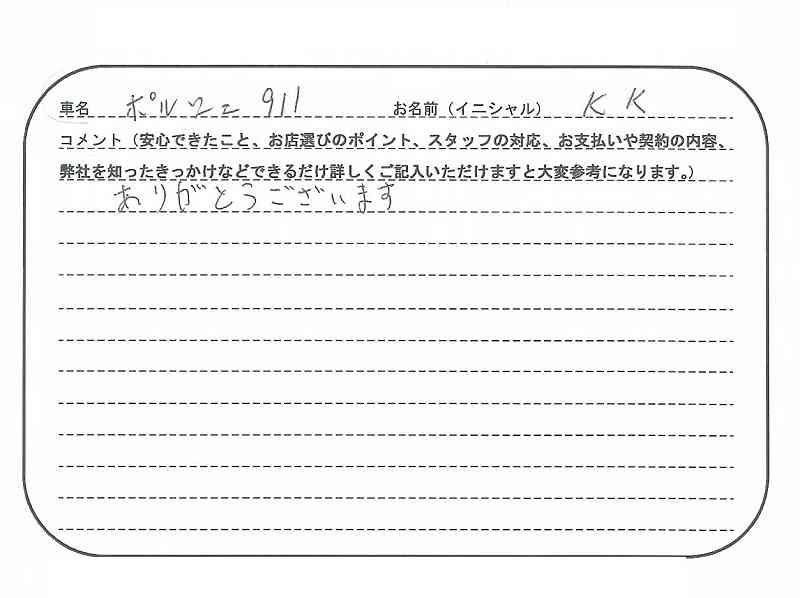 車名 ポルシェ 911 お名前（イニシャル） K K
コメント（安心できたこと、お店選びのポイント、スタッフの対応、お支払いや契約の内容、
弊社を知ったきっかけなどできるだけ詳しくご記入いただけますと大変参考になります。）
ありがとうございます